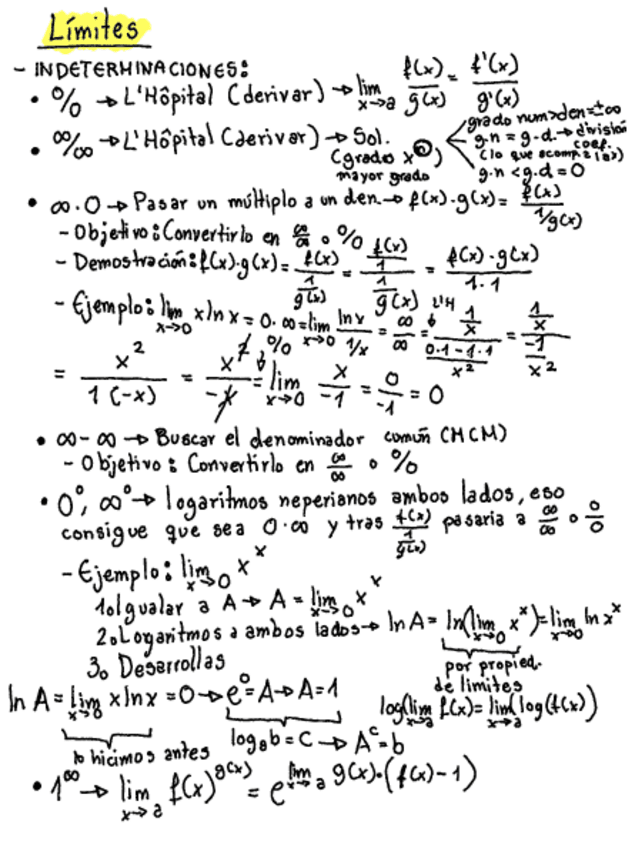 Límites
- INDETERMINACIONES:
• 0/0 → L'Hôpital (derivar) → lim x→a f(x)/g(x) = f'(x)/g'(x)
• ∞/∞ → L'Hôpital (derivar) → Sol. (grado xⁿ) mayor grado
grado num>den = ±∞
g.n = g.d. → división coef. (lo que acompaña a x)
g.n < g.d = 0
• ∞·0 → Pasar un múltiplo a un den → f(x)·g(x) = f(x)/(1/g(x))
- Objetivo: Convertirlo en ∞/∞ o 0/0
- Demostración: f(x)·g(x) = f(x)/(1/g(x)) = (f(x)/1)/(1/g(x)) = f(x)·g(x)/1·1
- Ejemplo: lim x→0 x ln x = 0·∞ = lim x→0 ln x/(1/x) = ∞/∞ L'H ↓ = (1/x)/((0·1-1·1)/x²) = (1/x)/(-1/x²)
= x²/1(-x) = x²/-x 0/0 ↓ = lim x→0 x/-1 = 0/-1 = 0
• ∞-∞ → Buscar el denominador común (MCM)
- Objetivo: Convertirlo en ∞/∞ o 0/0
• 0⁰, ∞⁰ → logaritmos neperianos ambos lados, eso
consigue que sea 0·∞ y tras f(x)/(1/g(x)) pasaria a ∞/∞ o 0/0
- Ejemplo: lim x→0 xˣ
1. Igualar a A → A = lim x→0 xˣ
2. Logaritmos a ambos lados → ln A = ln(lim x→0 xˣ) = lim x→0 ln xˣ
3. Desarrollas
por propied. de limites
log(lim x→a f(x) = lim x→a (log(f(x))
ln A = lim x→0 x ln x = 0 → e⁰ = A → A = 1
lo hicimos antes
logₐb = C → Aᶜ = b
• 1^∞ → lim x→a f(x)^g(x) = e^lim x→a g(x)·(f(x)-1)